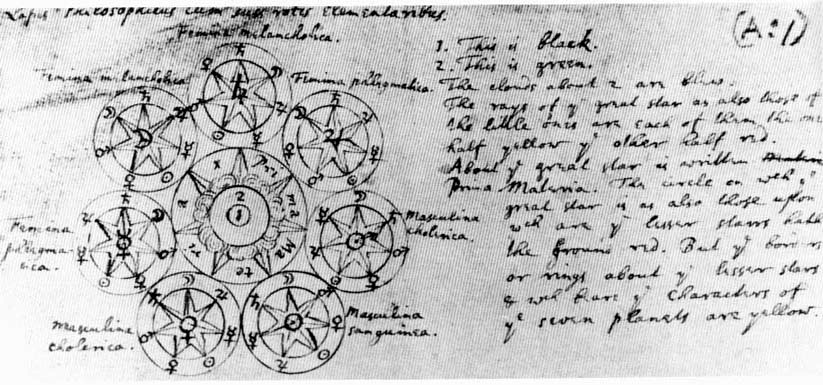 Lapis Philosophicus cum suis rotis Elementaribus.
(A:1)
Femina melancholica.
Femina melancholica
Femina phlegmatica.
Femina phlegmatica.
Masculina cholerica.
Masculina cholerica.
Masculina sanguinea.
Pri
ma
Ma
te
ri
a
2
1
1. This is black.
2. This is green.
The clouds about 2 are blew.
The rays of yᵉ great star as also those of
the little ones are each of them the one
half yellow yᵉ other half red.
About yᵉ great star is written
Prima Materia. The circle on wᶜʰ yᵉ
great star is as also those upon
wᶜʰ are yᵉ lesser starrs hath
the ground red. But yᵉ borders
or rings about yᵉ lesser stars
& wᶜʰ beare yᵉ characters of
yᵉ seven planets are yellow.